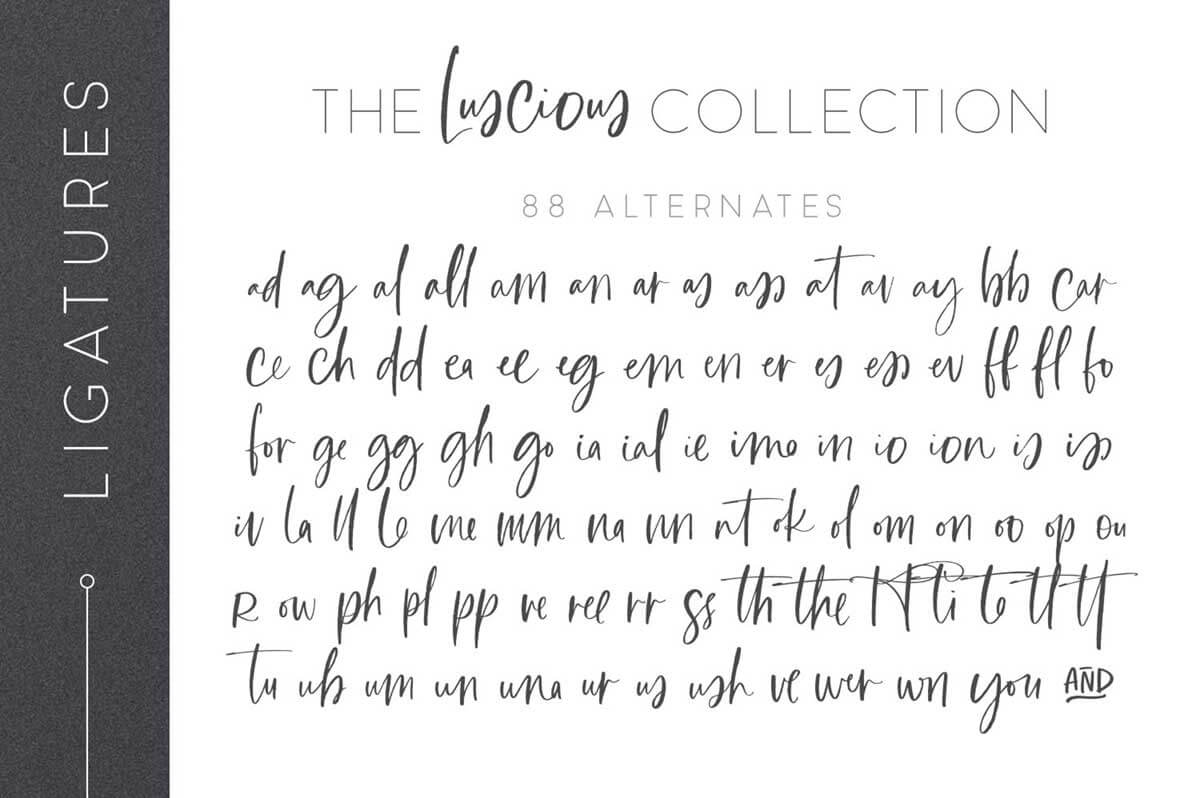 LIGATURES
THE Luscious COLLECTION
88 ALTERNATES
ad ag al all am an ar as ass at av ay bb Car
Ce Ch dd ea ee eg em en er es ess ev ff fl fo
for ge gg gh go ia ial ie ime in io ion is iss
iv la ll le me mm na nn nt ok ol om on oo op ou
R ow ph pl pp re ree rr ss th the ti to tl tt
tu ub um un una ur us ush ve wer wn you AND